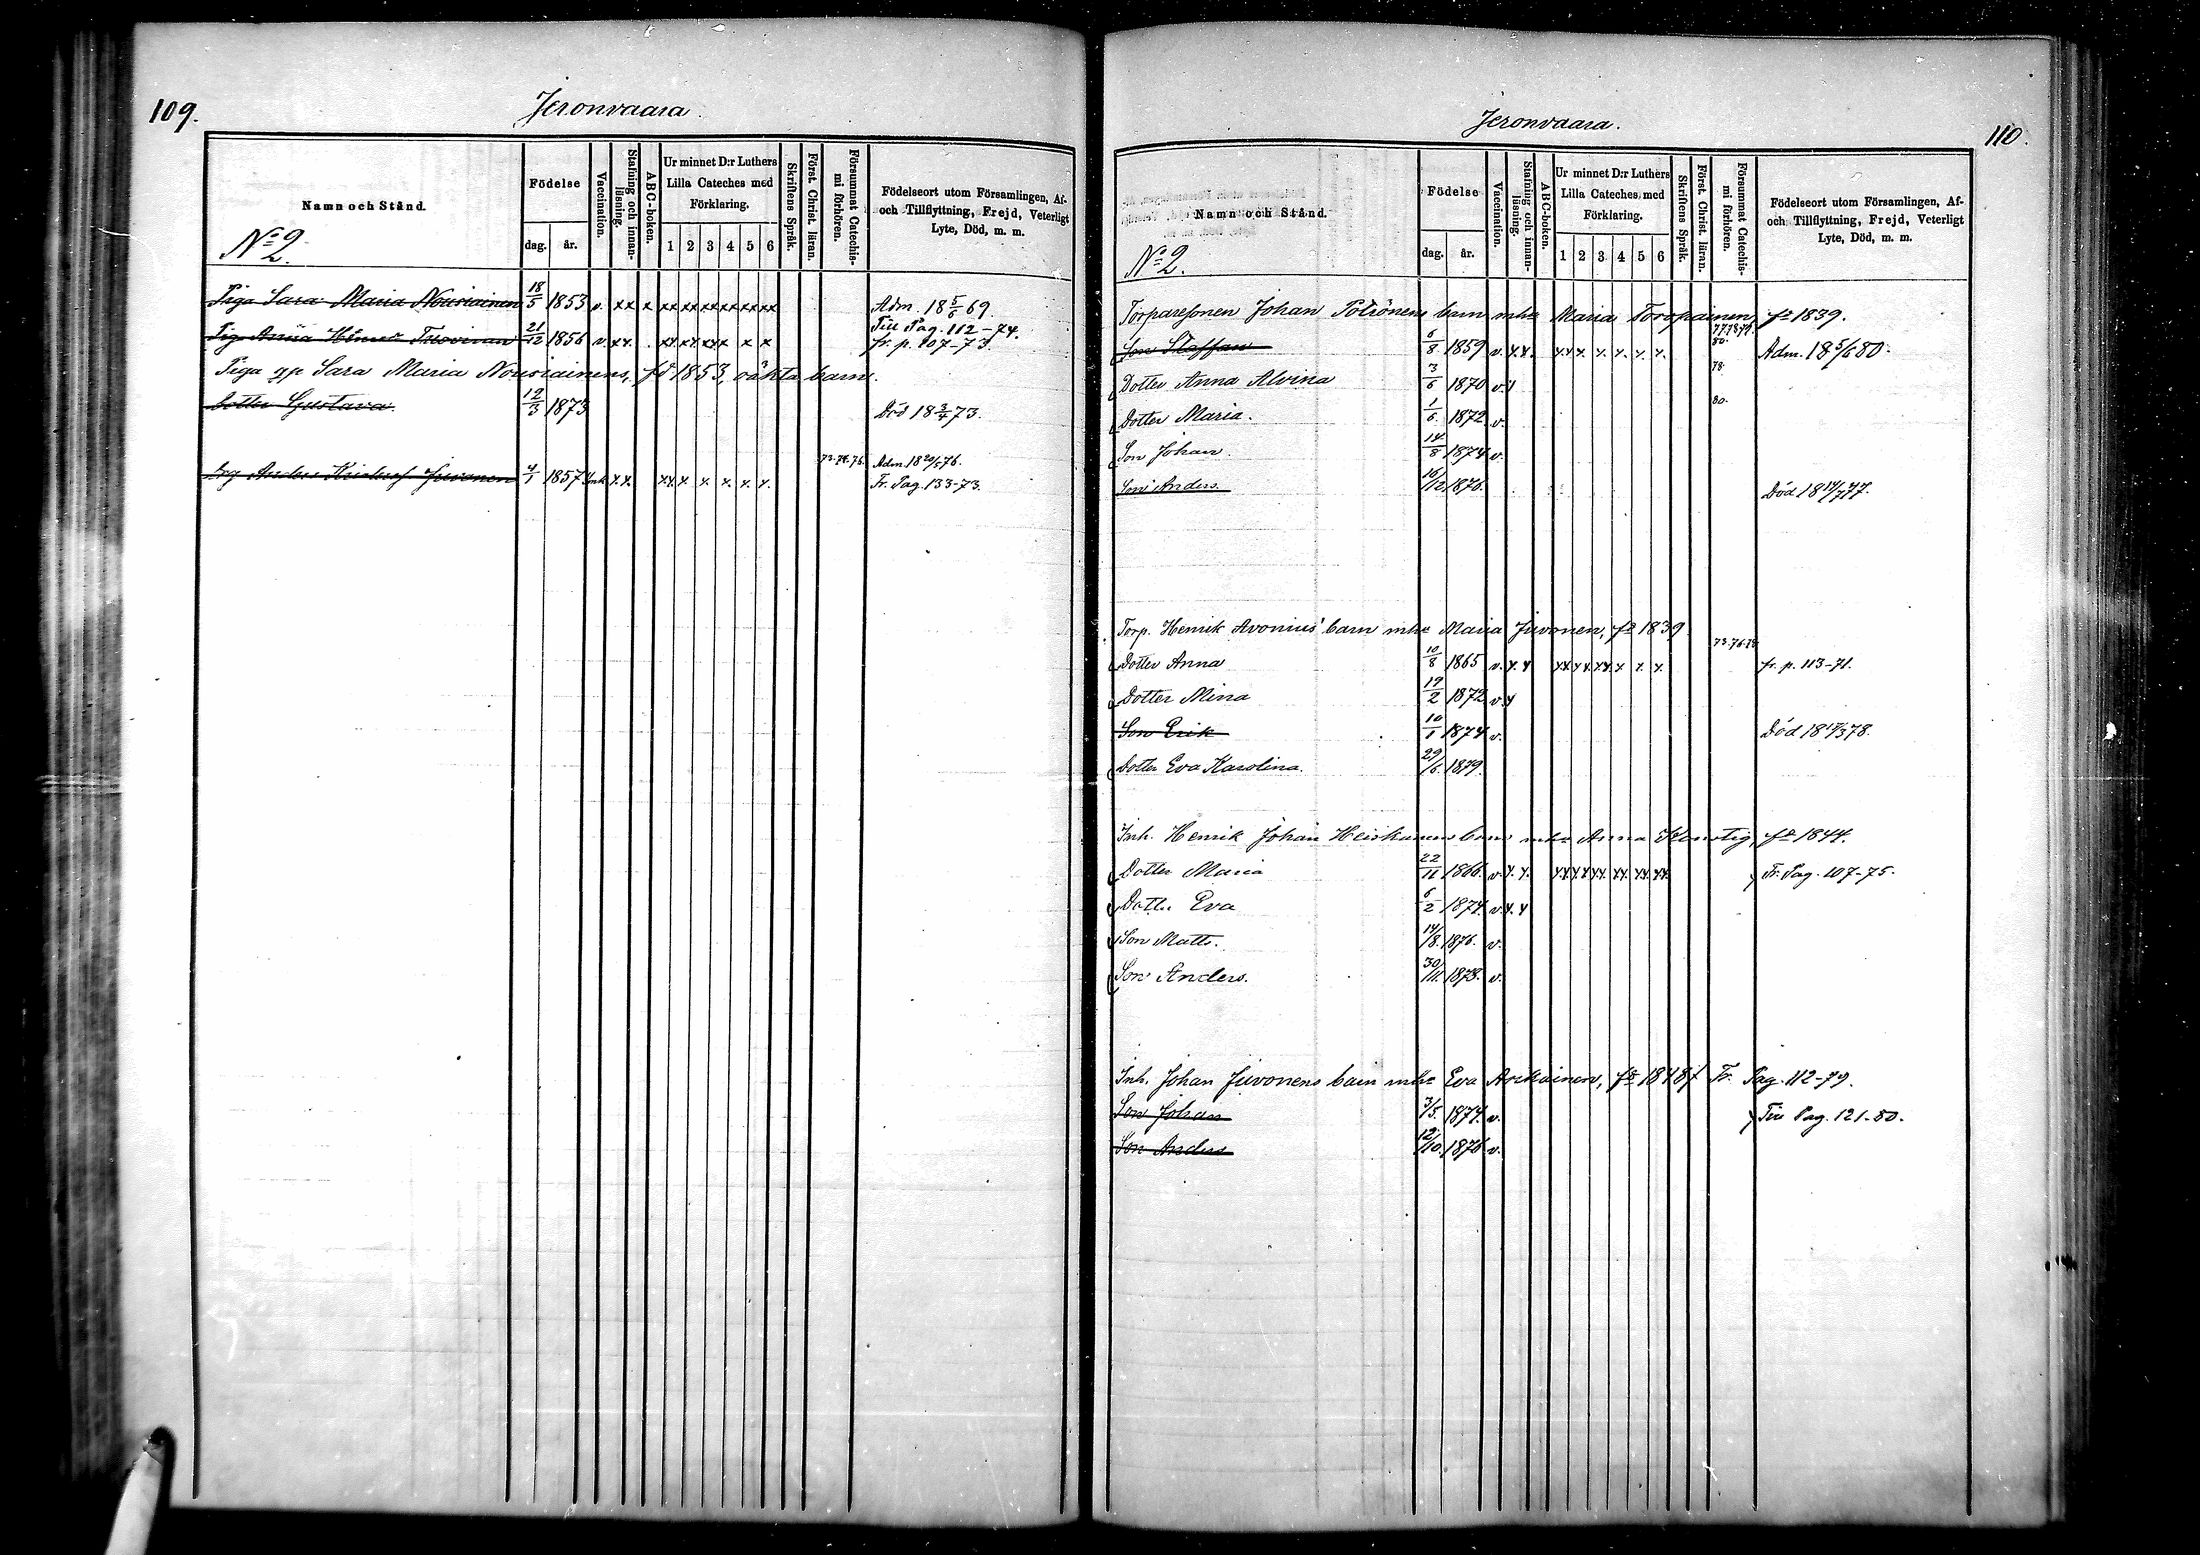 109.
Jeronvaara.
Namn och Stånd.
Födelse
dag. år.
Vaccination.
Stafning och innan-läsning.
ABC-boken.
Ur minnet D:r Luthers
Lilla Cateches med
Förklaring.
1 2 3 4 5 6
Skriftens Språk.
Först. Christ. läran.
Försummat Catechis-mi förhören.
Födelseort utom Församlingen, Af-
och Tillflyttning, Frejd, Veterligt
Lyte, Död, m. m.
No 2.
Piga Sara Maria Nousiainen 18/5 1853 v. xx x xx xx xx xx xx xx Adm. 18 5/6 69.
Till Pag. 112-74.
Pig. Anna 21/12 1856 v. xx. xx. x. xx x x x fr. p. 107-73.
Piga gp Sara Maria Nousiainens, fö 1853, oäkta barn.
Dotter Gustava. 12/3 1873 Död 18 3/4 73.
73. 74. 76. Adm. 18 20/5 76.
Anders Juvonen 4/1 1857 x. x. x x. x x. x. x. x. Fr. Pag. 133-73.
110.
Jeronvaara.
Namn och Stånd.
Födelse
dag. år.
Vaccination.
Stafning och innan-läsning.
ABC-boken.
Ur minnet D:r Luthers
Lilla Cateches med
Förklaring.
1 2 3 4 5 6
Skriftens Språk.
Först. Christ. läran.
Försummat Catechis-mi förhören.
Födelseort utom Församlingen, Af-
och Tillflyttning, Frejd, Veterligt
Lyte, Död, m. m.
No 2.
Torparesonen Johan Potrönens barn mhu Maria Toropainen, fö 1839.
Son Staffan 6/8 1859 v. x. x. x x x. x. x. x. x. 80. Adm. 18 5/6 80.
Dotter Anna Alvina 3/6 1870 v. 78.
Dotter Maria. 1/6 1872 v. 80.
Son Johan 14/8 1874 v.
Son Anders. 16/12 1876. Död 18 14/7 77.
Torp. Henrik Avonius' barn mhu Maria Juvonen, fö 1839
Dotter Anna 10/8 1865 v. x. x xx xx xx x x. x. fr. p. 113-71.
Dotter Mina 19/2 1872 v. x
Son Erik 10/1 1874 v. Död 18 17/3 78.
Dotter Eva Karolina. 29/6 1879.
Inh. Henrik Johan Heiskanens barn mhu Anna fö 1844.
Dotter Maria 22/11 1866. v. x. x. xx xx xx. xx. xx. xx. Fr. Pag. 107-75.
Dott. Eva 6/2 1874. v. x. x
Son Matts. 14/8. 1876. v.
Son Anders. 30/11. 1878. v.
Inh. Johan Juvonens barn mhu Eva fö 1848 Fr. Pag. 112-79.
Son Johan 3/5. 1874. v. Till Pag. 121-80.
Son Anders 12/10. 1876 v.